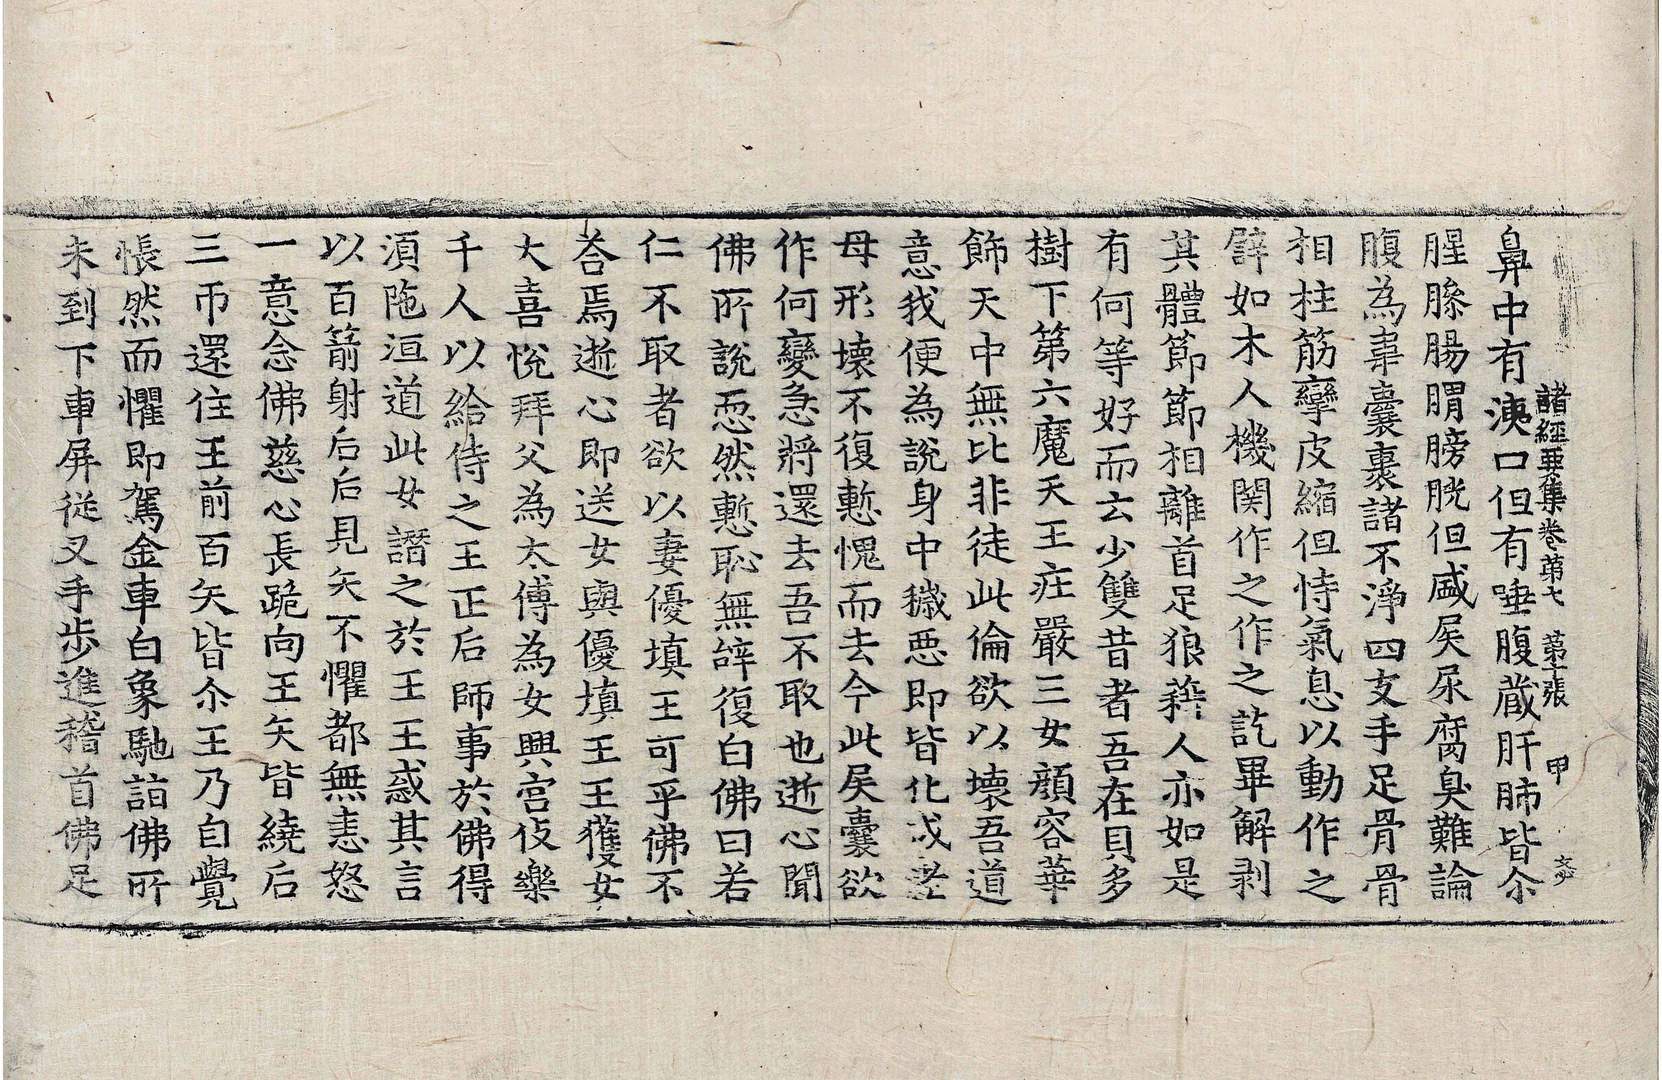 諸經要集卷第七 第二張 甲
鼻中有洟口但有唾腹藏肝肺皆尒
腥臊腸胃膀胱但盛屎尿腐臭難論
腹為韋囊裹諸不淨四支手足骨骨
相柱筋攣皮縮但恃氣息以動作之
譬如木人機関作之作之訖畢解剥
其體節節相離首足狼藉人亦如是
有何等好而云少雙昔者吾在貝多
樹下第六魔天王莊嚴三女顔容華
飾天中無比非徒此倫欲以壞吾道
意我便為說身中穢惡即皆化成老
母形壞不復慙愧而去今此屎囊欲
作何變急將還去吾不取也逝心聞
佛所說恧然慙恥無辭復白佛曰若
仁不取者欲以妻優填王可乎佛不
荅焉逝心即送女與優填王王獲女
大喜悅拜父為太傅為女興宮伎樂
千人以給侍之王正后師事於佛得
須陁洹道此女譖之於王王惑其言
以百箭射后后見矢不懼都無恚怒
一意念佛慈心長跪向王矢皆繞后
三帀還住王前百矢皆尒王乃自覺
悵然而懼即駕金車白象馳詣佛所
未到下車屏從叉手步進稽首佛足